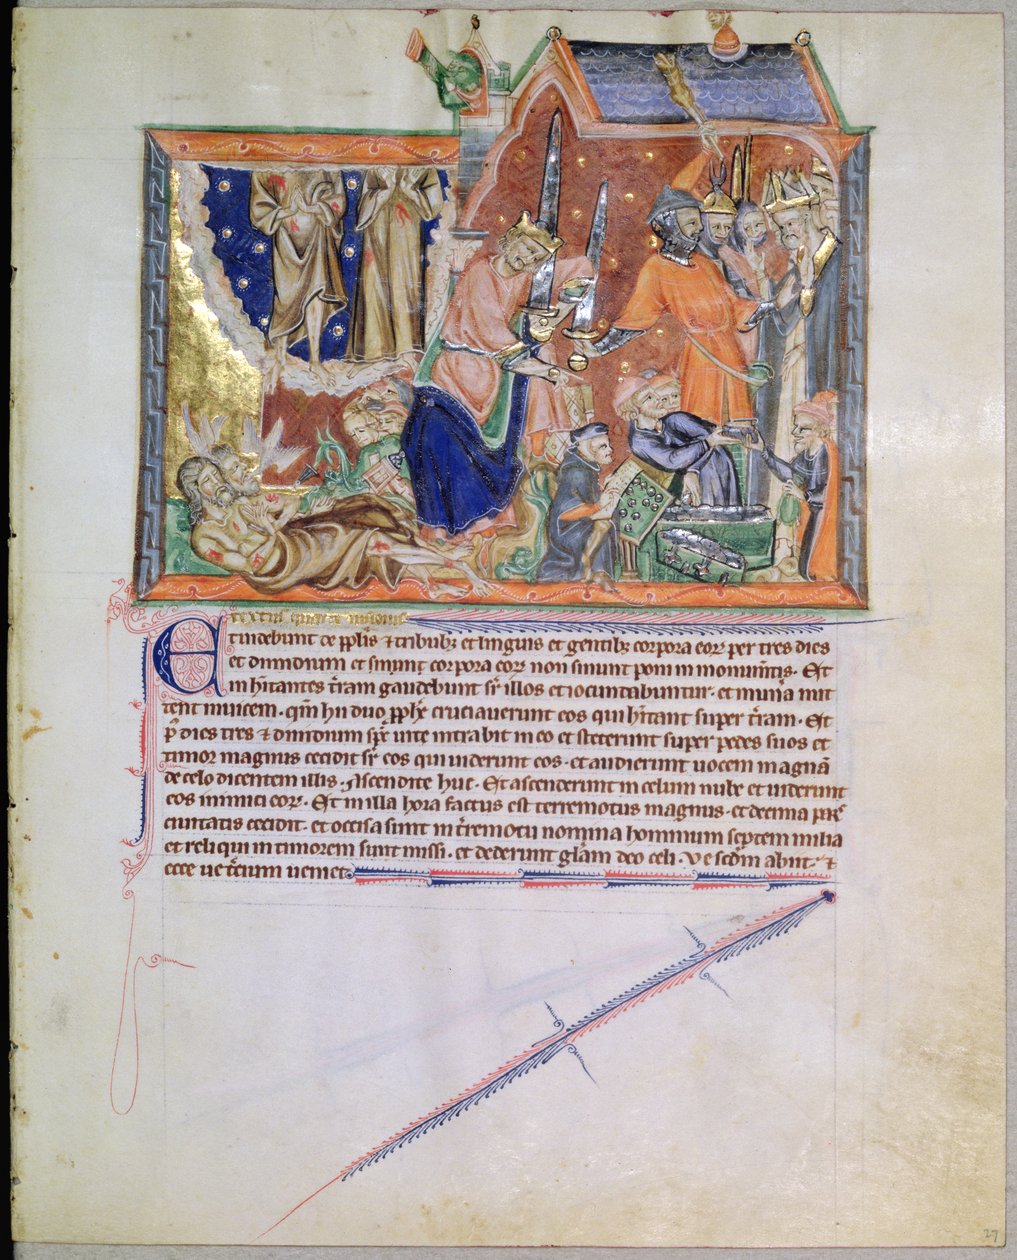 Textus
Et uidebunt de pp̄lis ⁊ tribubꝫ et linguis et gentibꝫ corpora eoꝝ per tres dies
et dimidium et sinunt corpora eoꝝ non sinunt poni in monum̄tis. Et
inh̄itantes t̄ram gaudebunt sr̄ illos et iocundabuntur. et mun̄a mit
tent inuicem. qm̄ hii duo ꝓph̄e cruciauerunt eos qui h̄itant super t̄ram. Et
p̄ dies tres ⁊ dimidium sp̄c uite intrabit in eo et steterunt super pedes suos et
timor magnus cecidit sr̄ eos qui uiderunt eos. et audierunt uocem magnā
de celo dicentem illis. Ascendite huc. Et ascenderunt in celum nube et uiderunt
eos inimici eoꝝ. Et in illa hora factus est terremotus magnus. et decima pars
ciuitatis cecidit. et occisa sunt in t̄remotu nomina hominum septem milia
et reliqui in timorem sunt missi. et dederunt gl̄am deo celi. Ve scd̄m abiit. ⁊
ecce ue tc̄ium ueniet
27